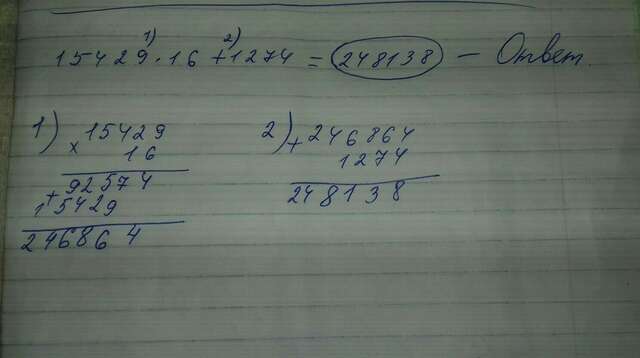 1) 2)
15429 · 16 + 1274 = 248138 – Ответ.
1) 15429
x 16
92574
+
15429
246864
2) + 246864
1274
248138